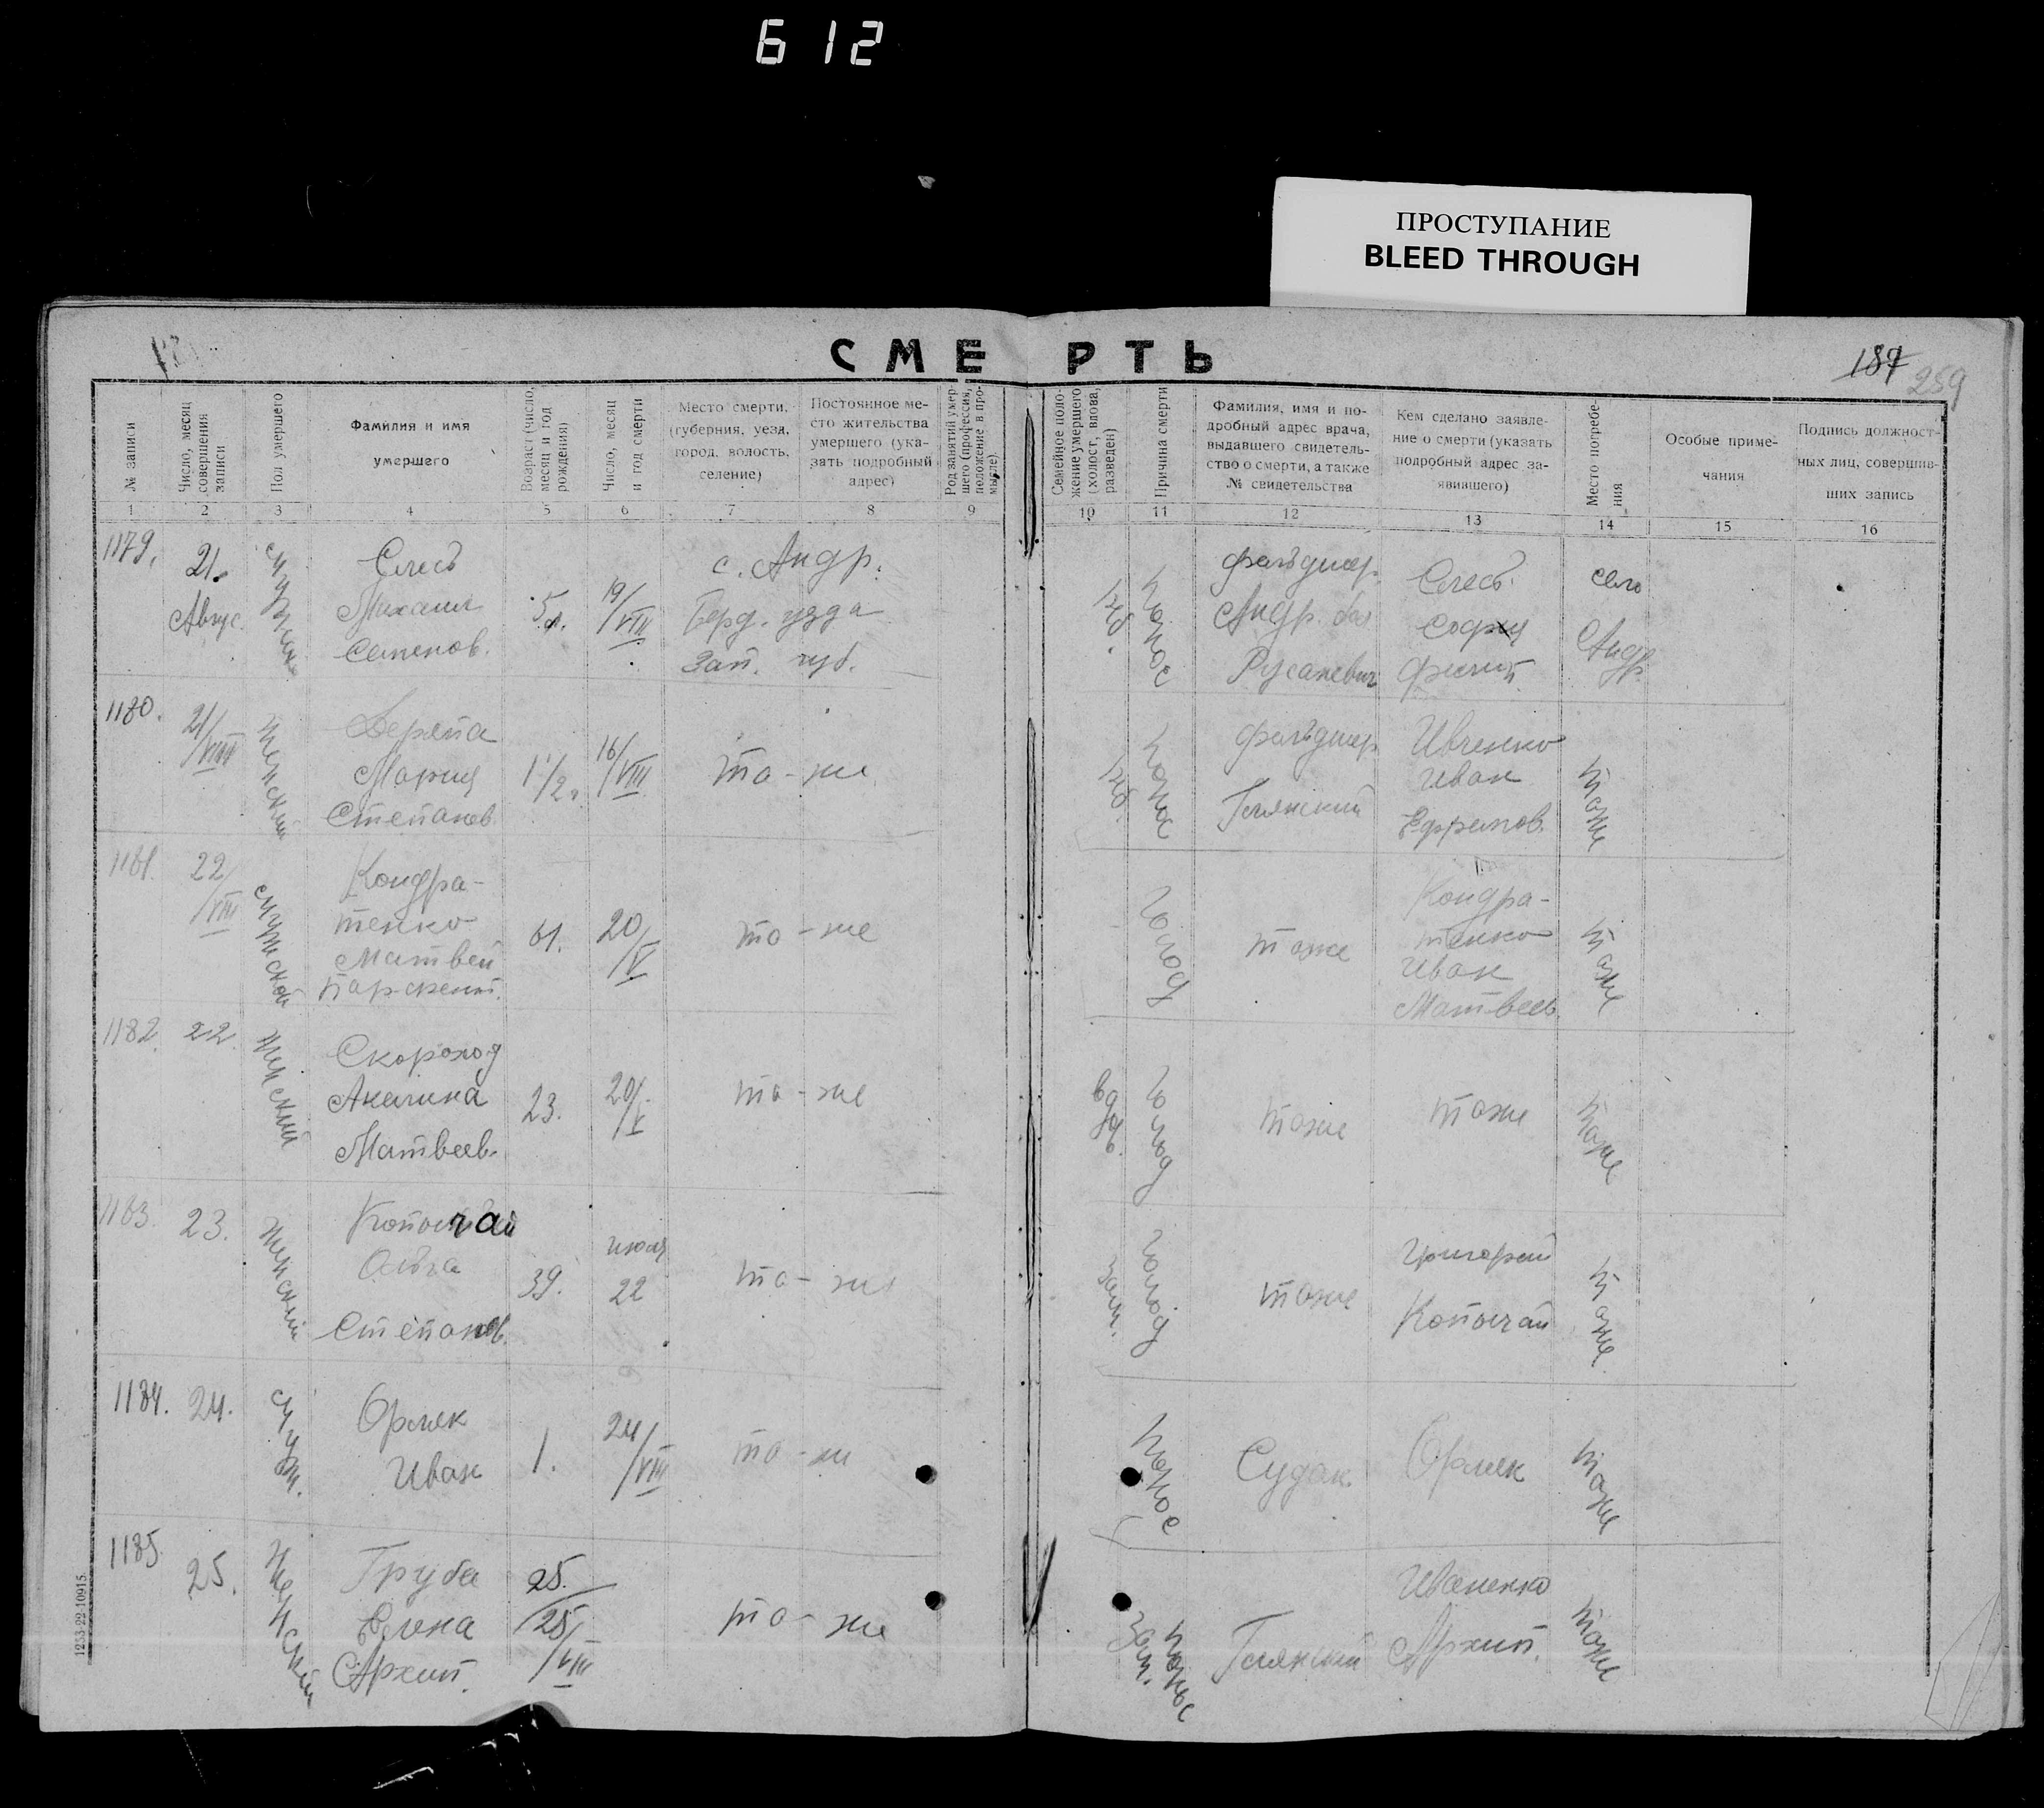 612
ПРОСТУПАНИЕ
BLEED THROUGH
СМЕРТЬ
187
259
№ записи
Число, месяц совершения записи
Пол умершего
Фамилия и имя умершего
Возраст (число, месяц и год рождения)
Число, месяц и год смерти
Место смерти, (губерния, уезд, город, волость, селение)
Постоянное место жительства умершего (указать подробный адрес)
Род занятий умершего (профессия, положение в промысле).
Семейное положение умершего (холост, вдова, разведен)
Причина смерти
Фамилия, имя и подробный адрес врача, выдавшего свидетельство о смерти, а также № свидетельства
Кем сделано заявление о смерти (указать подробный адрес заявившего)
Место погребения
Особые примечания
Подпись должностных лиц, совершивших запись
1 2 3 4 5 6 7 8 9 10 11 12 13 14 15 16
1179.
21.
Август
Слесь
Михаил
Семенов.
5 л.
19/VIII
с. Андр.
Берд. уезда
Зап. губ.
понос
фельдшер
Андр. бол
Русаневич
Слесь
София
Филип.
село
Андр.
1180.
21/VIII
женский
Деряпа
Мария
Степанов
1 1/2
16/VIII
то-же
понос
фельдшер
Глянский
Ивченко
Иван
Ефремов.
тоже
1181.
22/VIII
мужской
Кондра-
тенко
Матвей
Парфент.
61.
20/V
то-же
голод
тоже
Кондра-
тенко
Иван
Матвеев.
тоже
1182.
22.
женский
Скороход
Акилина
Матвеев.
23.
20/V
то-же
голод
тоже
тоже
тоже
1183.
23.
женский
Копочай
Ольга
Степанов.
39.
июля
22
то-же
зам.
голод
тоже
Григорий
Копочай
тоже
1184.
24.
муж.
Орлек
Иван
1.
24/VIII
то-же
понос
Судак
Орлек
тоже
1185.
25.
женский
Груба
Елена
Архип.
25.
25/VIII
то-же
зам.
понос
Глянский
Иваненко
Архип.
тоже
1253-22-10915.